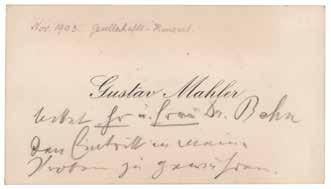 Nov. 1903. Gesellschafts-Konzert
Gustav Mahler
bittet Hr u. Frau Dr. Behn
den Eintritt in meine
Proben zu gewähren.